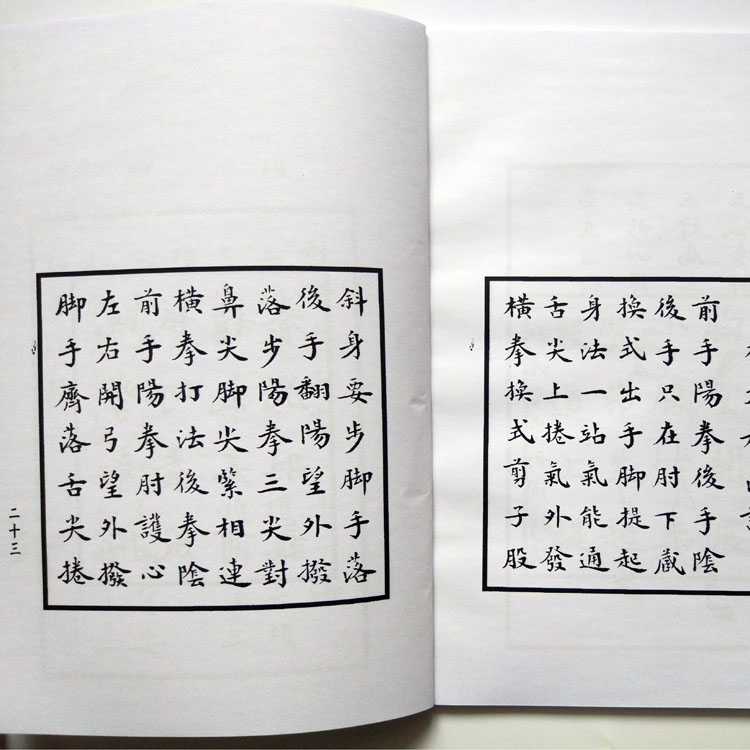 前手陽拳後手陰
後手只在肘下藏
換式出手脚提起
身法一站氣能通
舌尖上捲氣外發
橫拳換式剪子股
斜身要步脚手落
後手翻陽望外撥
落步陽拳三尖對
鼻尖脚尖緊相連
橫拳打法後拳陰
前手陽拳肘護心
左右開弓望外撥
脚手齊落舌尖捲
二十三